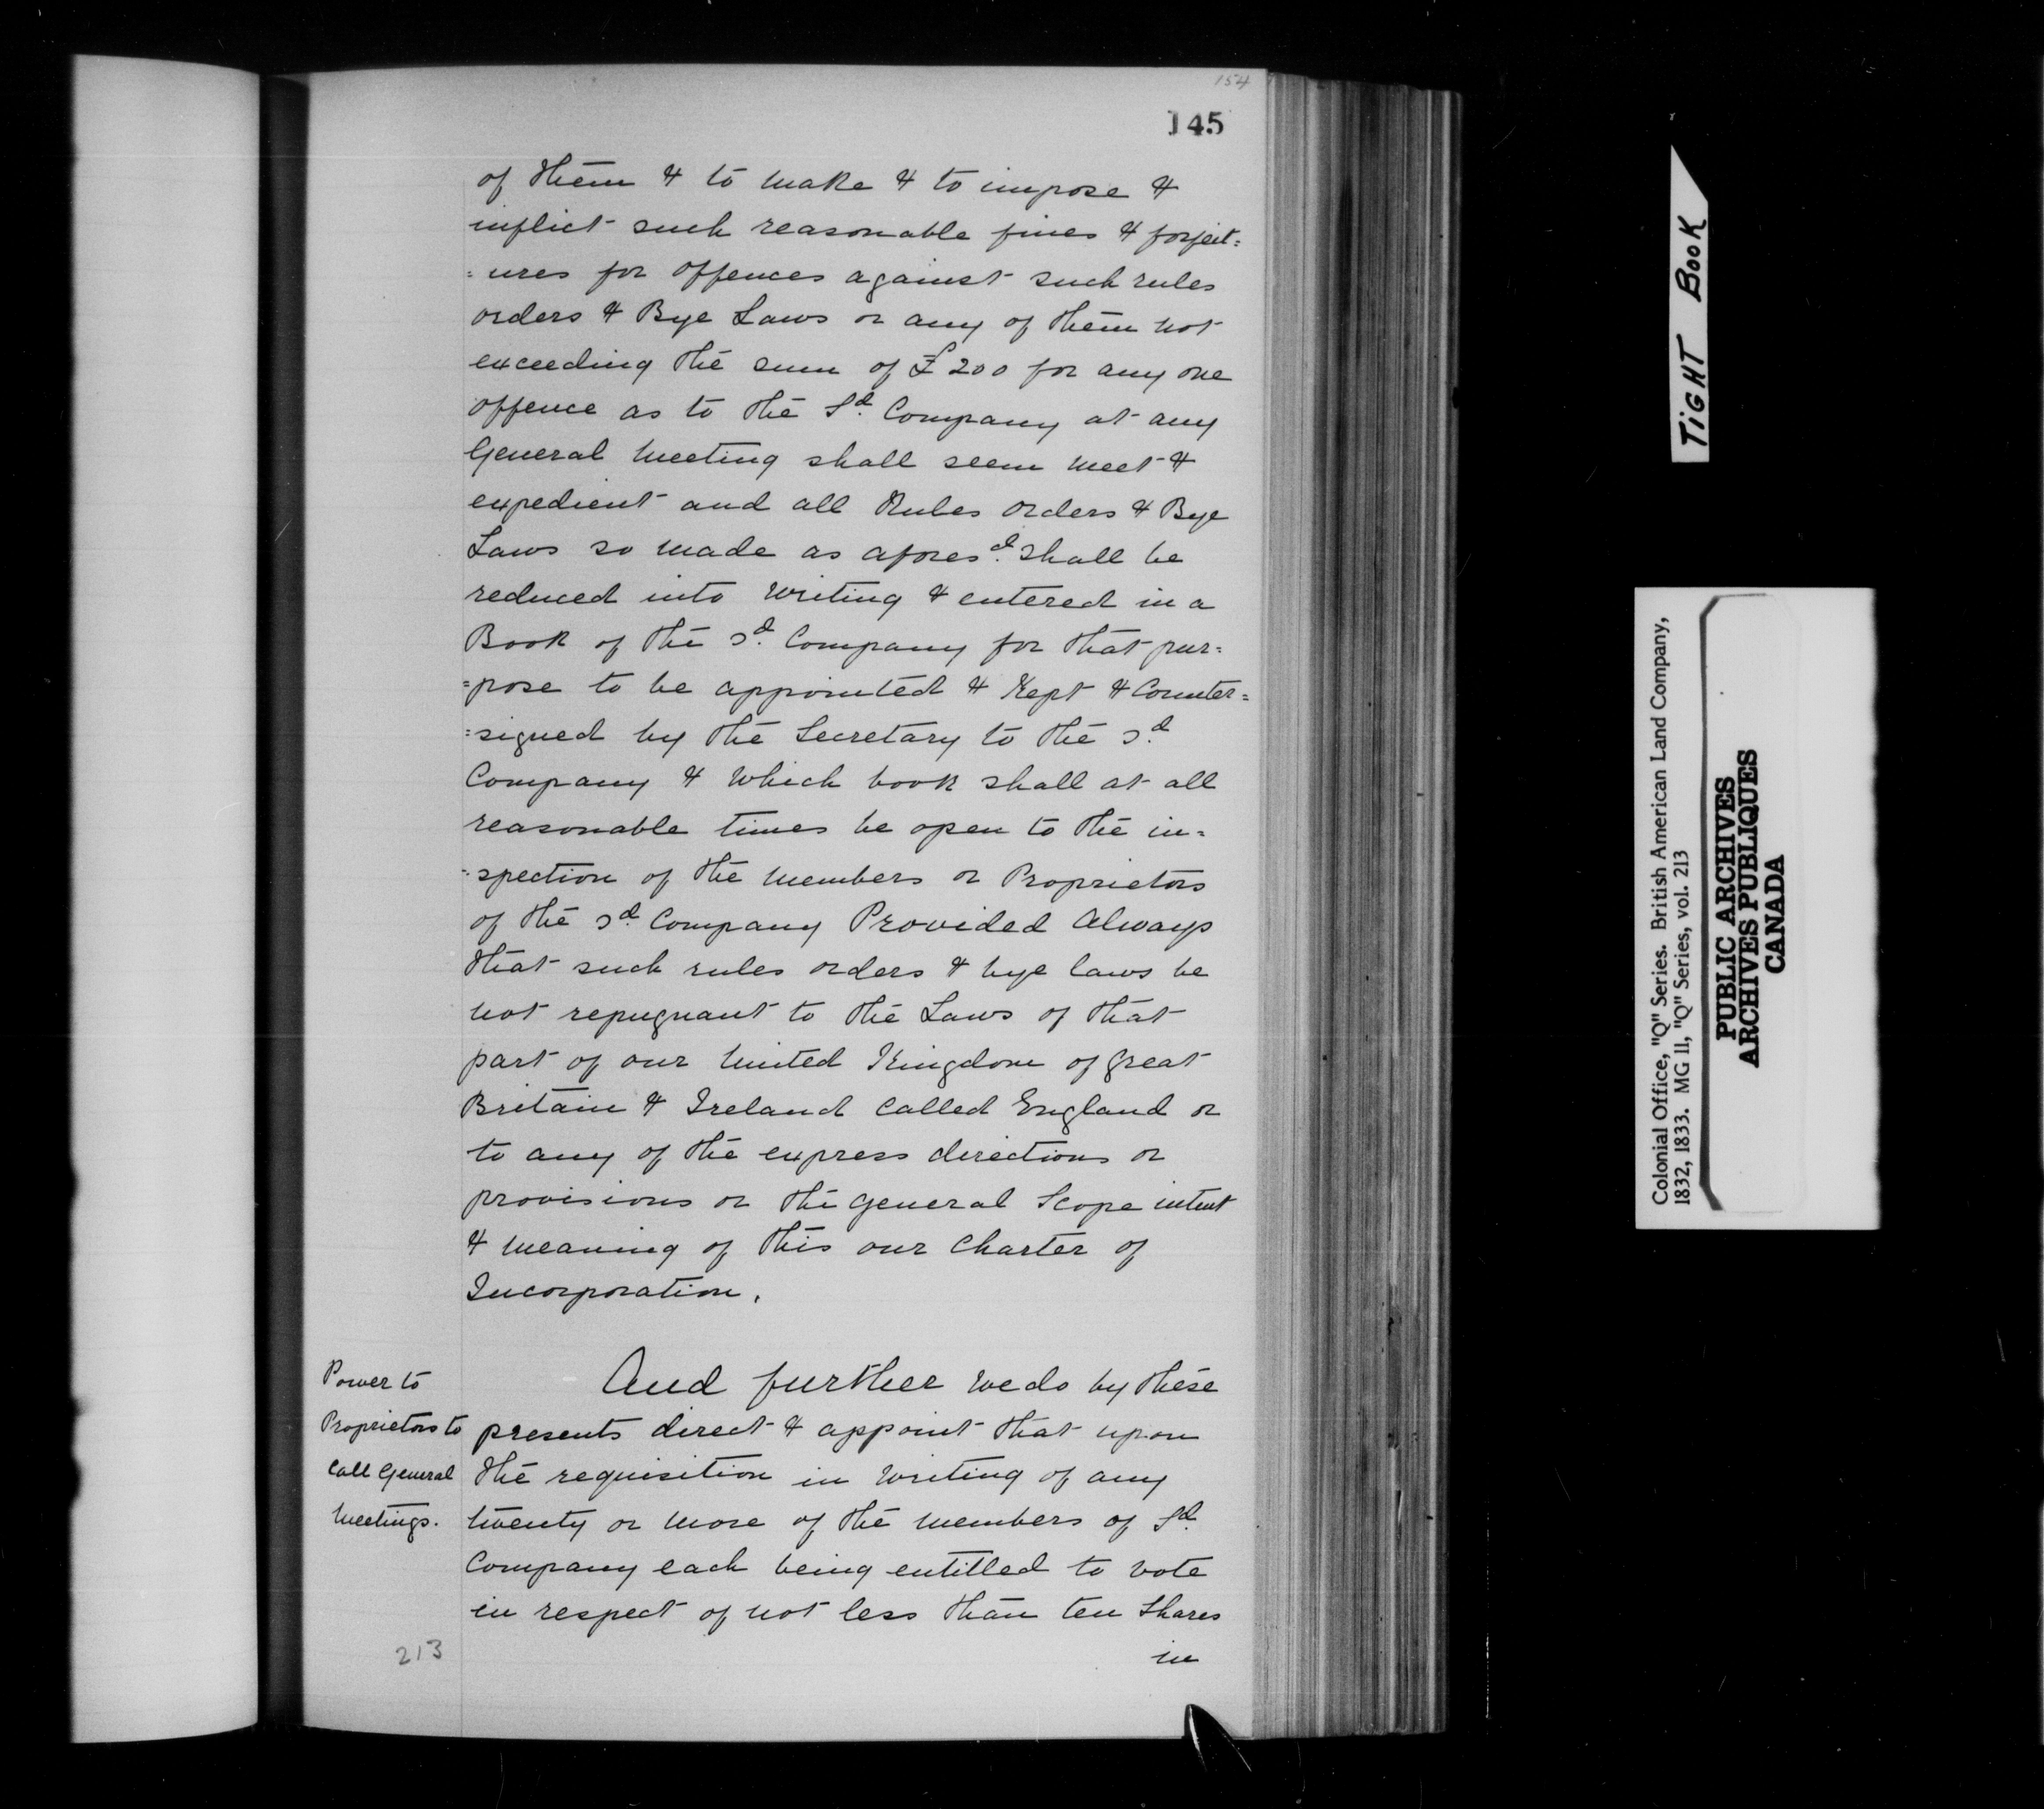 154
145
of them & to make & to impose &
inflict such reasonable fines & forfeit=
=ures for offences against such rules
orders & Bye Laws or any of them not
exceeding the sum of £200 for any one
offence as to the Sd. Company at any
General Meeting shall seem meet &
expedient and all Rules orders & Bye
Laws so made as aforesd. shall be
reduced into writing & entered in a
Book of the sd. Company for that pur=
=pose to be appointed & Kept & Counter=
=signed by the Secretary to the sd.
Company & which book shall at all
reasonable times be open to the in=
=spection of the members or Proprietors
of the sd. Company Provided always
that such rules orders & bye laws be
not repugnant to the Laws of that
part of our United Kingdom of Great
Britain & Ireland called England or
to any of the express directions or
provisions or the general Scope intent
& meaning of this our Charter of
Incorporation.
Power to
Proprietors to
Call General
Meetings.
And further we do by these
presents direct & appoint that upon
the requisition in writing of any
twenty or more of the members of Sd.
Company each being entitled to vote
in respect of not less than ten Shares
in
213
TiGHT BOOK
Colonial Office, "Q" Series. British American Land Company,
1832, 1833. MG 11, "Q" Series, vol. 213
PUBLIC ARCHIVES
ARCHIVES PUBLIQUES
CANADA